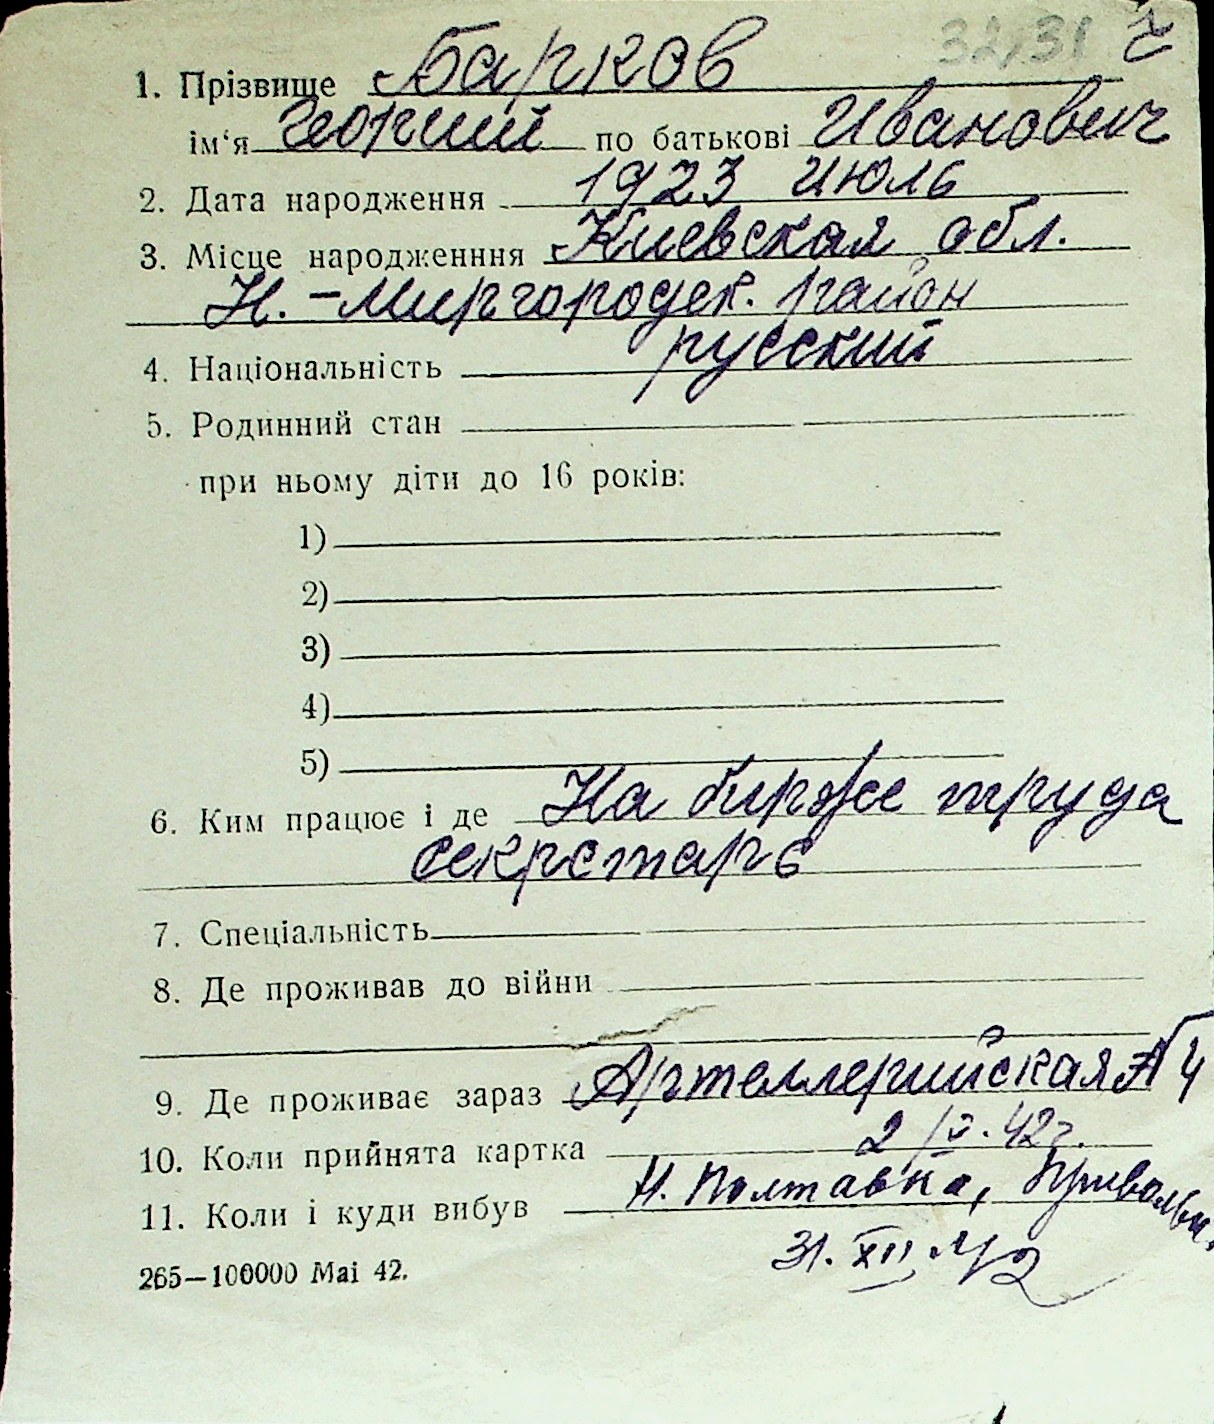 32,31
1. Прізвище Барков
ім'я Георгий по батькові Иванович
2. Дата народження 1923 июль
3. Місце народженння Киевская обл.
Н.-Миргородск. район
4. Національність русский
5. Родинний стан
при ньому діти до 16 років:
1)
2)
3)
4)
5)
6. Ким працює і де На бирже труда
секретарь
7. Спеціальність
8. Де проживав до війни
9. Де проживає зараз Артеллерийская 4
10. Коли прийнята картка 2/V.42г.
11. Коли і куди вибув Н. Полтавка, Привольн.
31.XII.42
265—100000 Mai 42.